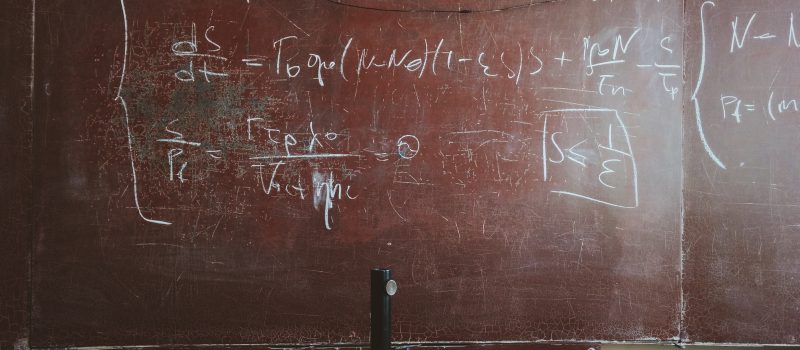 dS/dt = Γ g₀(N-N₀)(1-εS)S + N/τn - S/τp
S/Pf = Γτpλ₀/Vact ηhc =
S ≪ 1/ε
N - N
Pf = (m